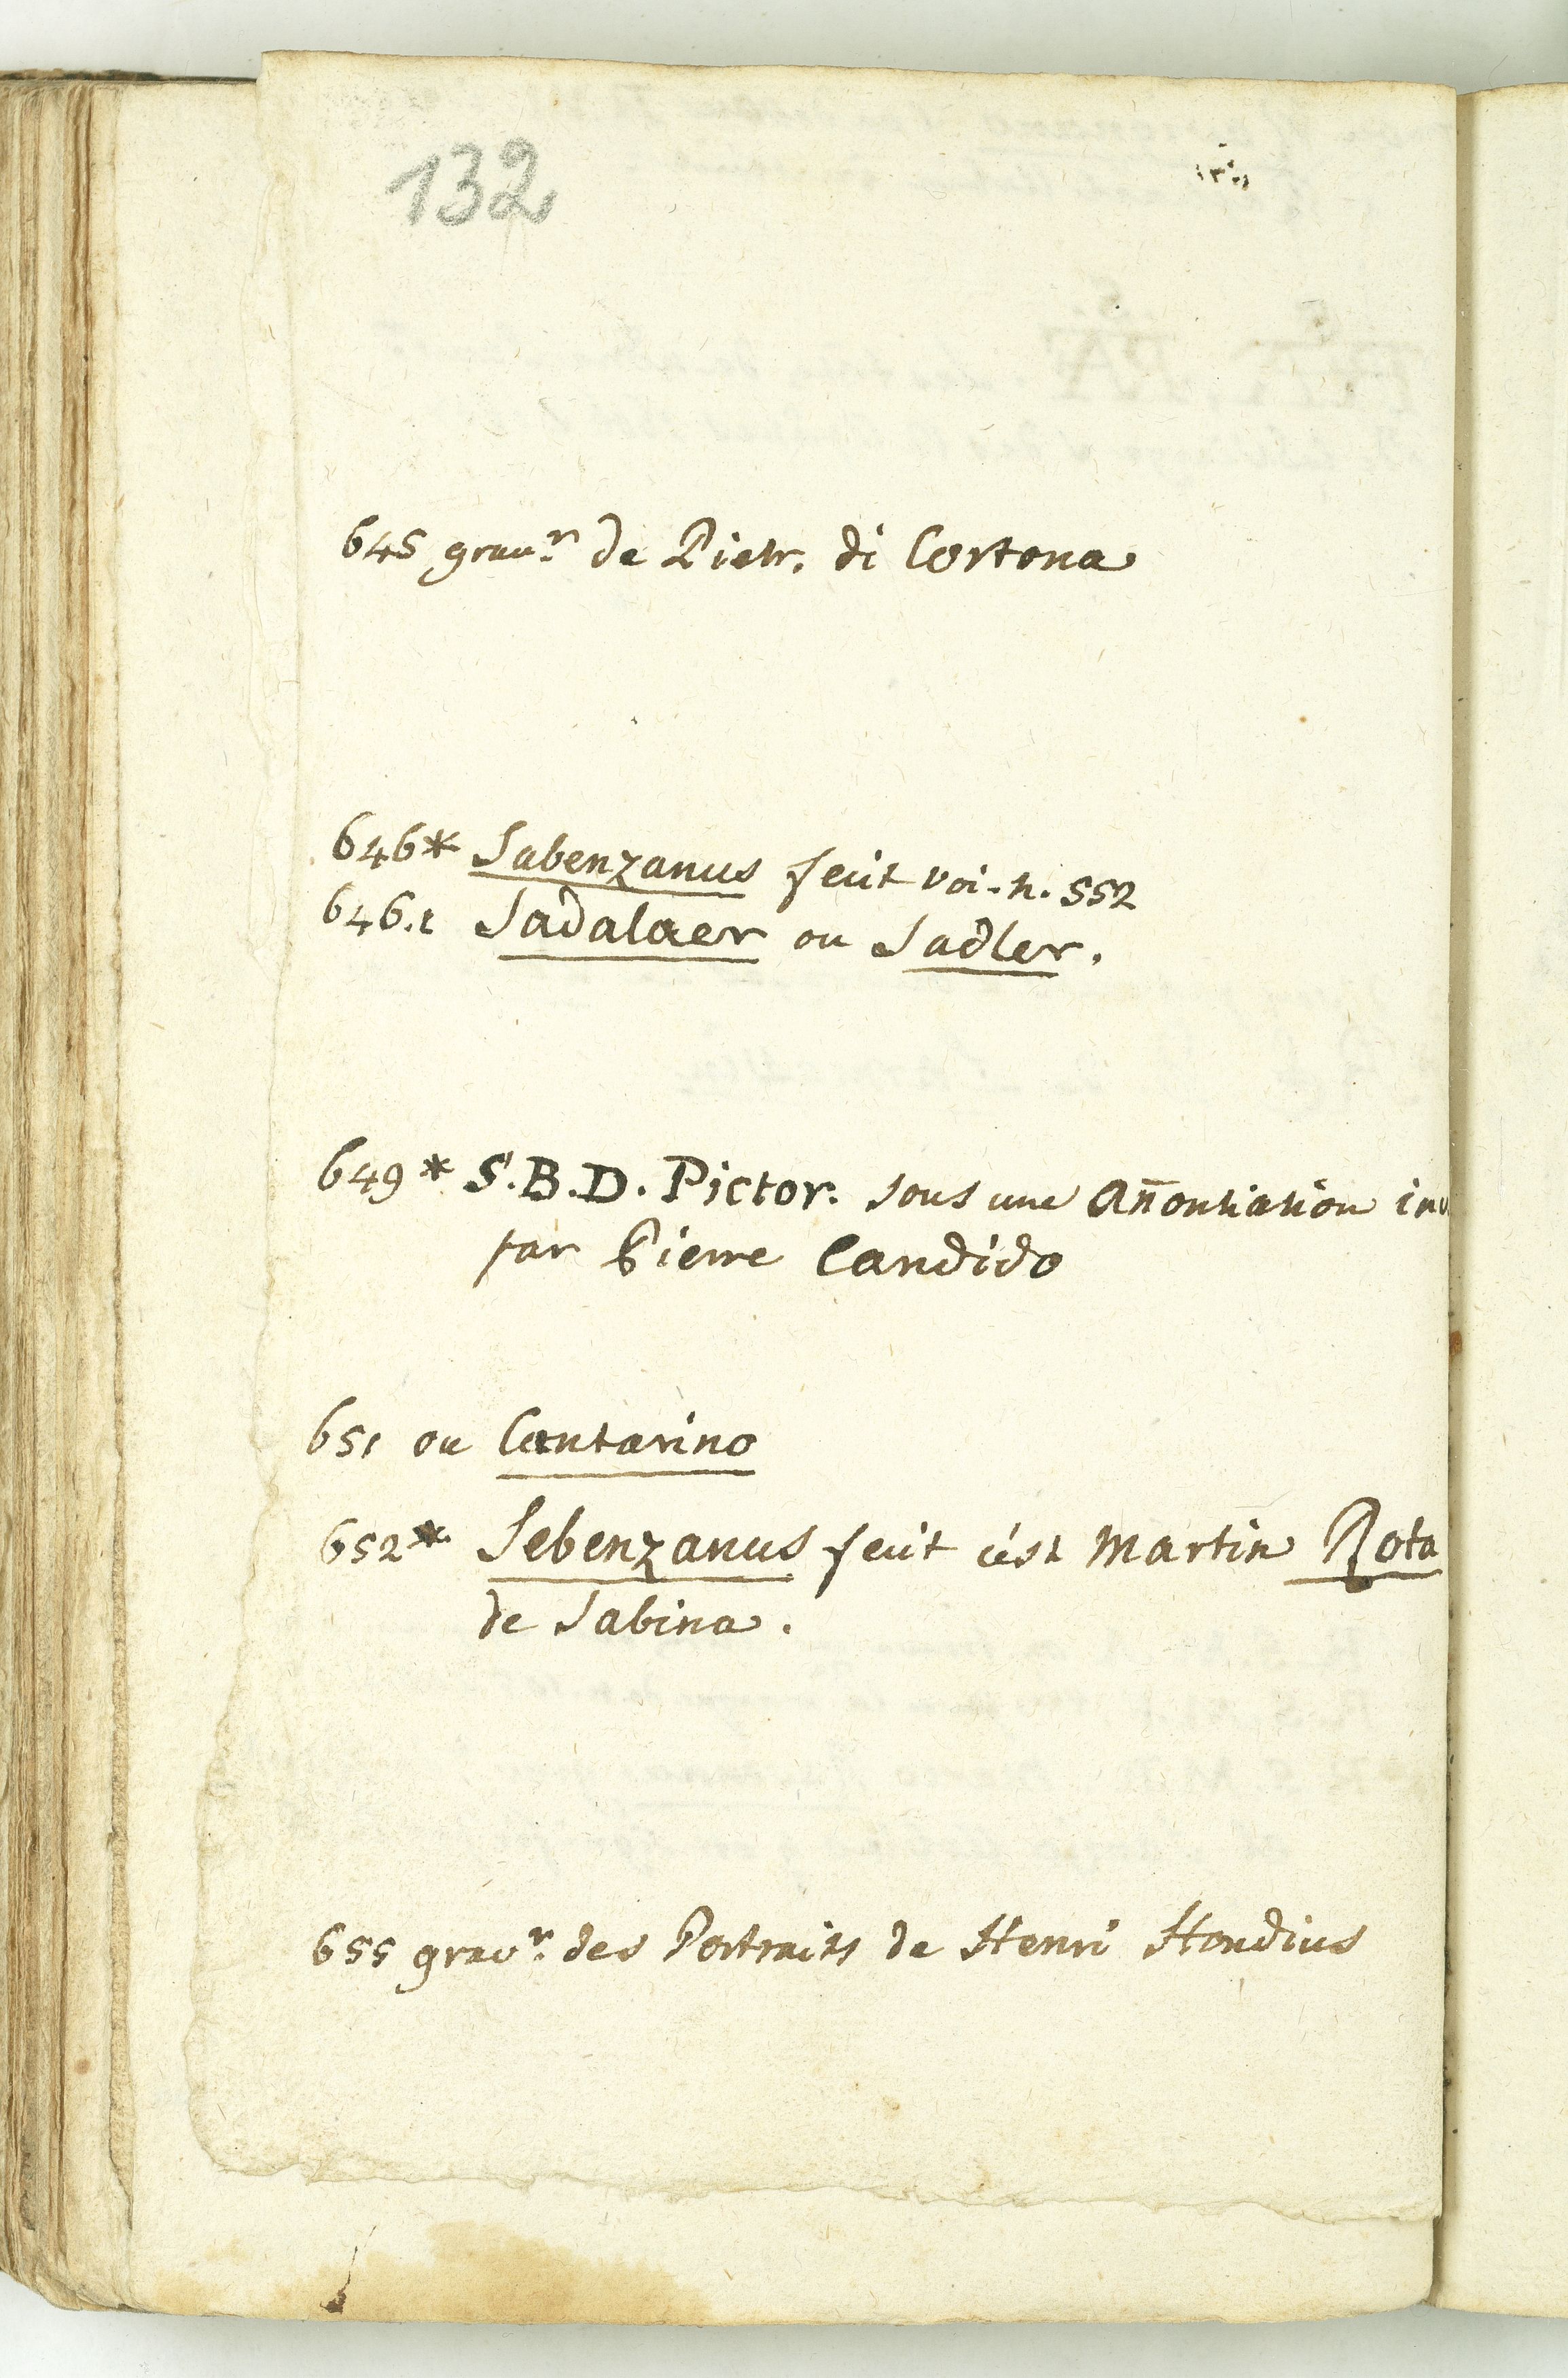 132
645 grav.r de Pietr. di Cortona
646* Sabenzanus fecit voi. n. 552
646.1 Sadalaer ou Sadler.
649* S.B.D. Pictor. sous une Añontiation inv
par Pierre Candido
651 ou Cantarino
652* Sebenzanus fecit c'est Martin Rota
de Sabina.
655 grav.r des Portraits de Henri Hondius